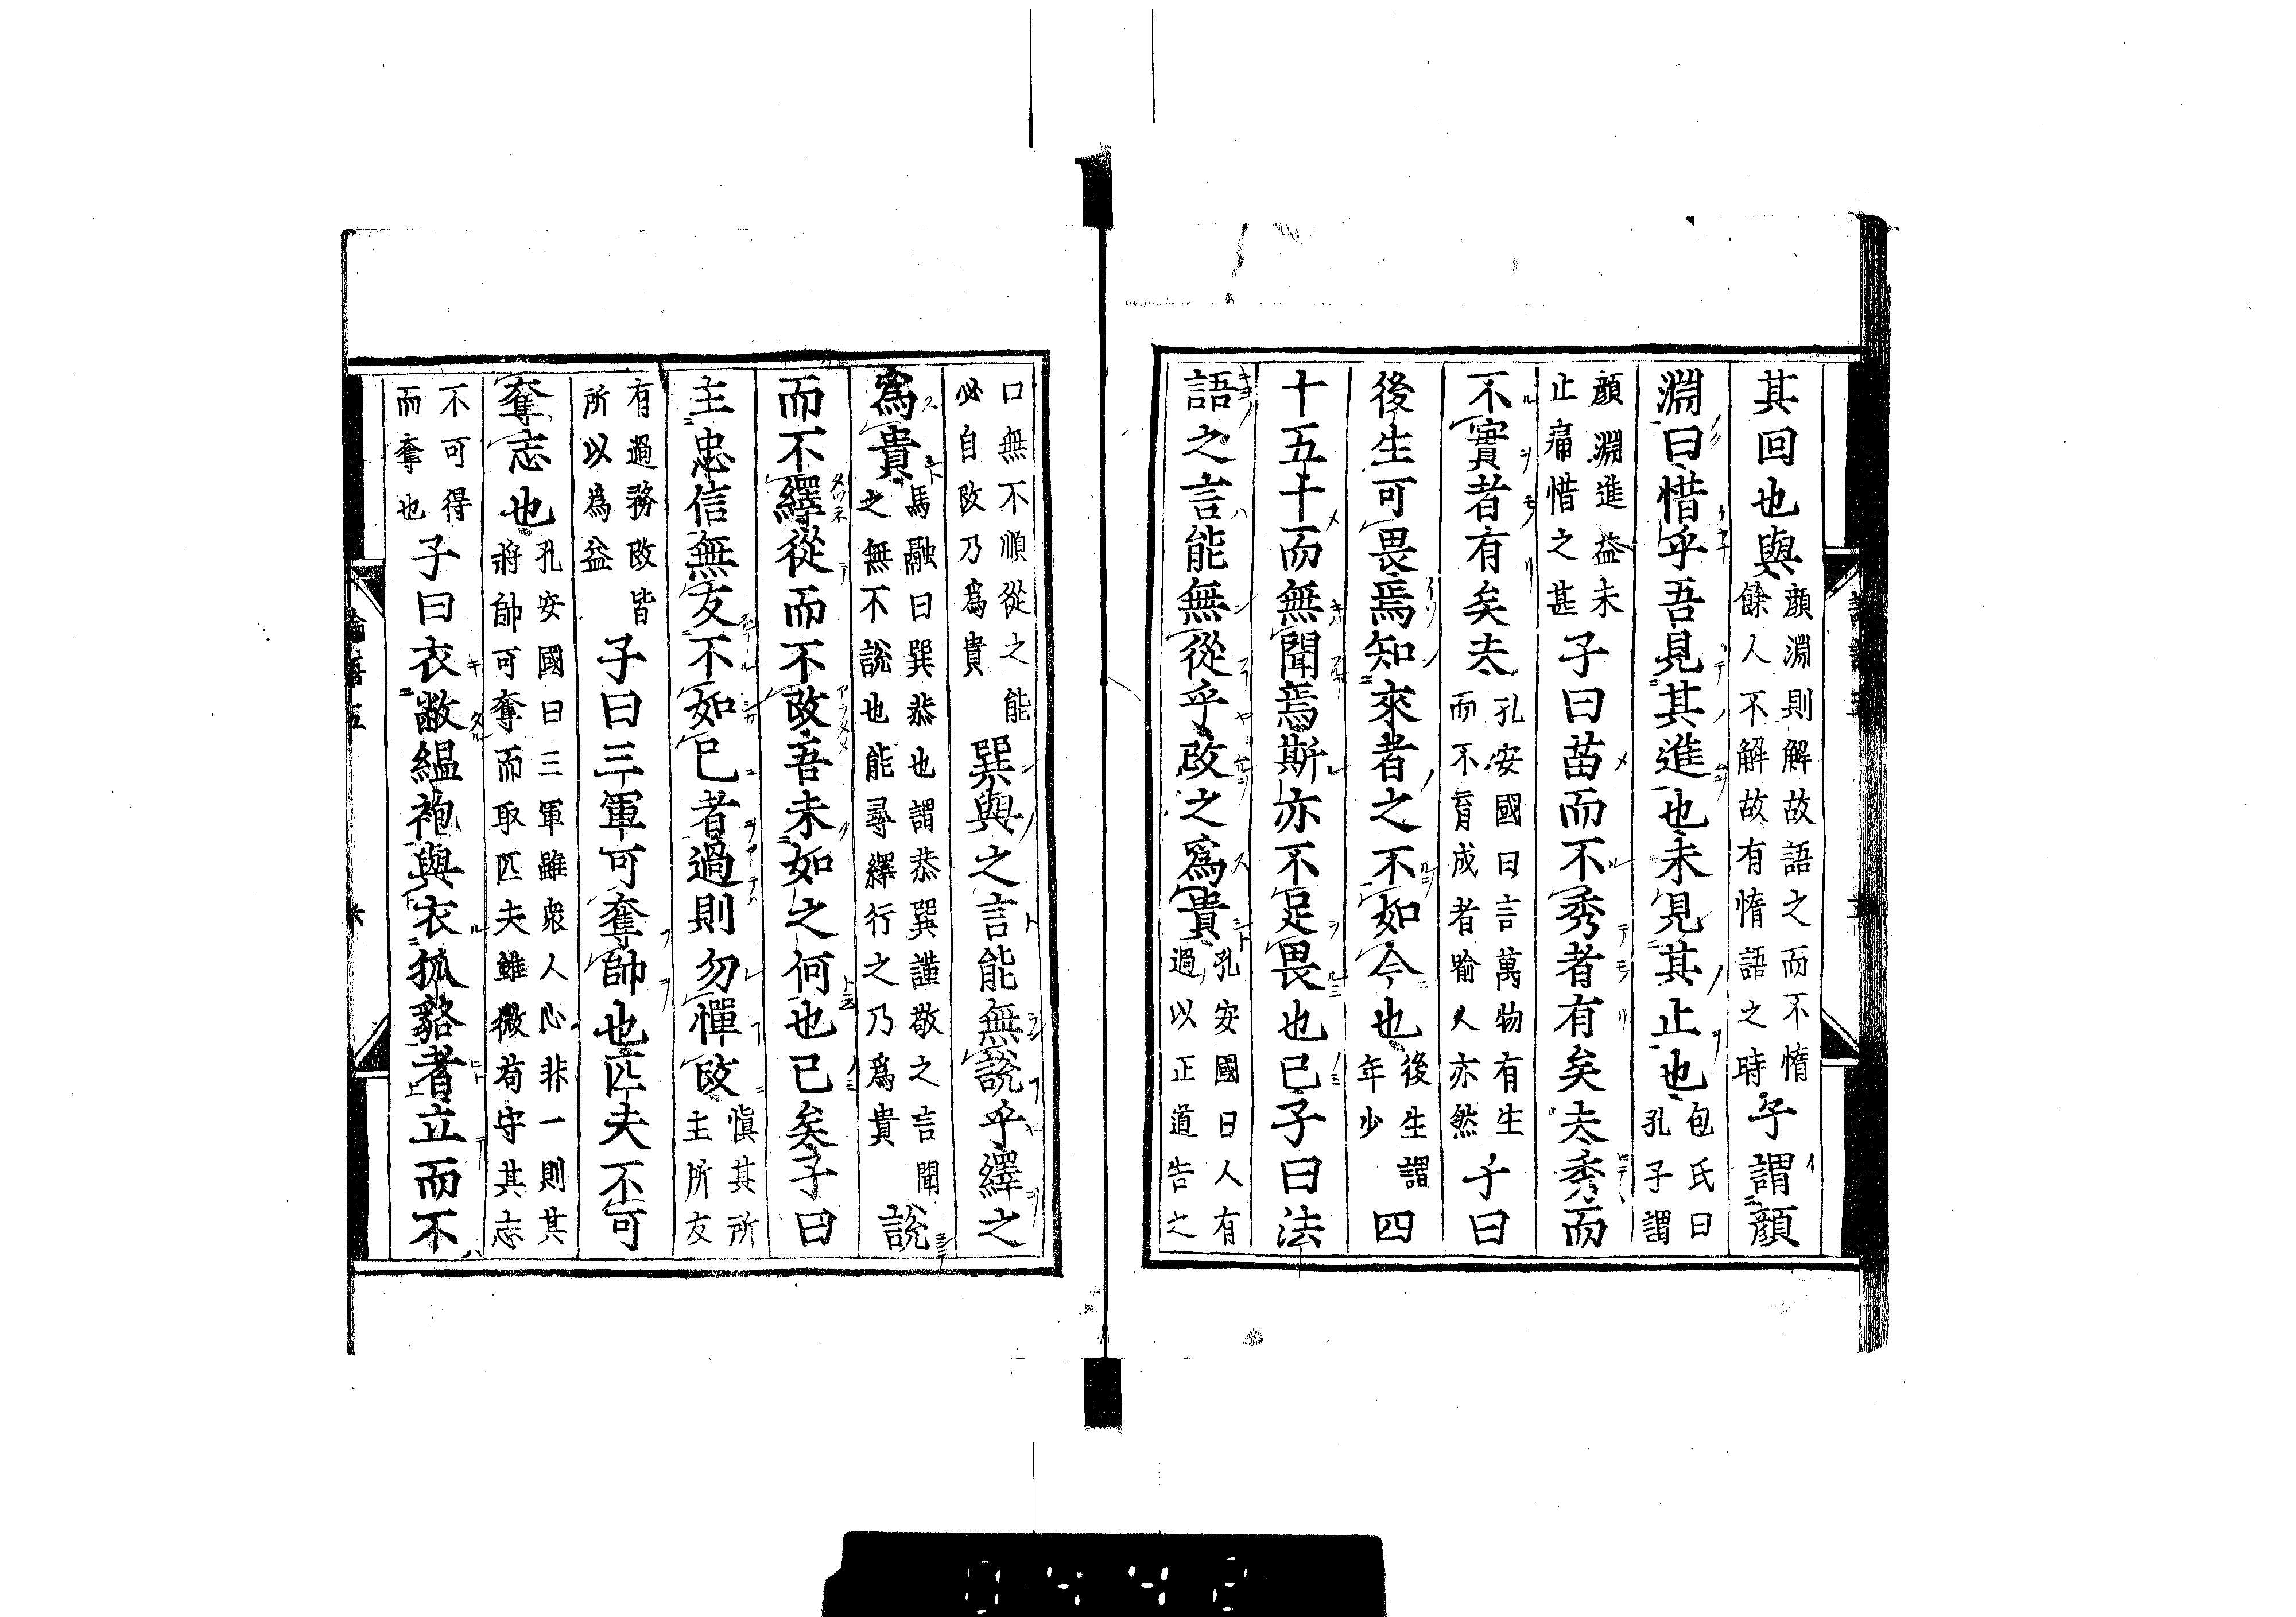 其回也與顔淵則解故語之而不惰餘人不解故有惰語之時子謂顔
淵曰惜乎吾見其進也未見其止也包氏曰孔子謂
顔淵進益未止痛惜之甚子曰苗而不秀者有矣夫秀而
不實者有矣夫孔安國曰言萬物有生而不育成者喻人亦然子曰
後生可畏焉知來者之不如今也後生謂年少四
十五十而無聞焉斯亦不足畏也已子曰法
語之言能無從乎改之爲貴孔安國曰人有過以正道告之
口無不順從之能必自改乃爲貴巽與之言能無説乎繹之
爲貴馬融曰巽恭也謂恭巽謹敬之言聞之無不説也能尋繹行之乃爲貴説
而不繹從而不改吾未如之何也已矣子曰
主忠信無友不如已者過則勿憚改愼其所主所友
有過務改皆所以爲益子曰三軍可奪帥也匹夫不可
奪志也孔安國曰三軍雖衆人心非一則其將帥可奪而取匹夫雖微苟守其志
不可得而奪也子曰衣敝緼袍與衣狐貉者立而不
論語五 六